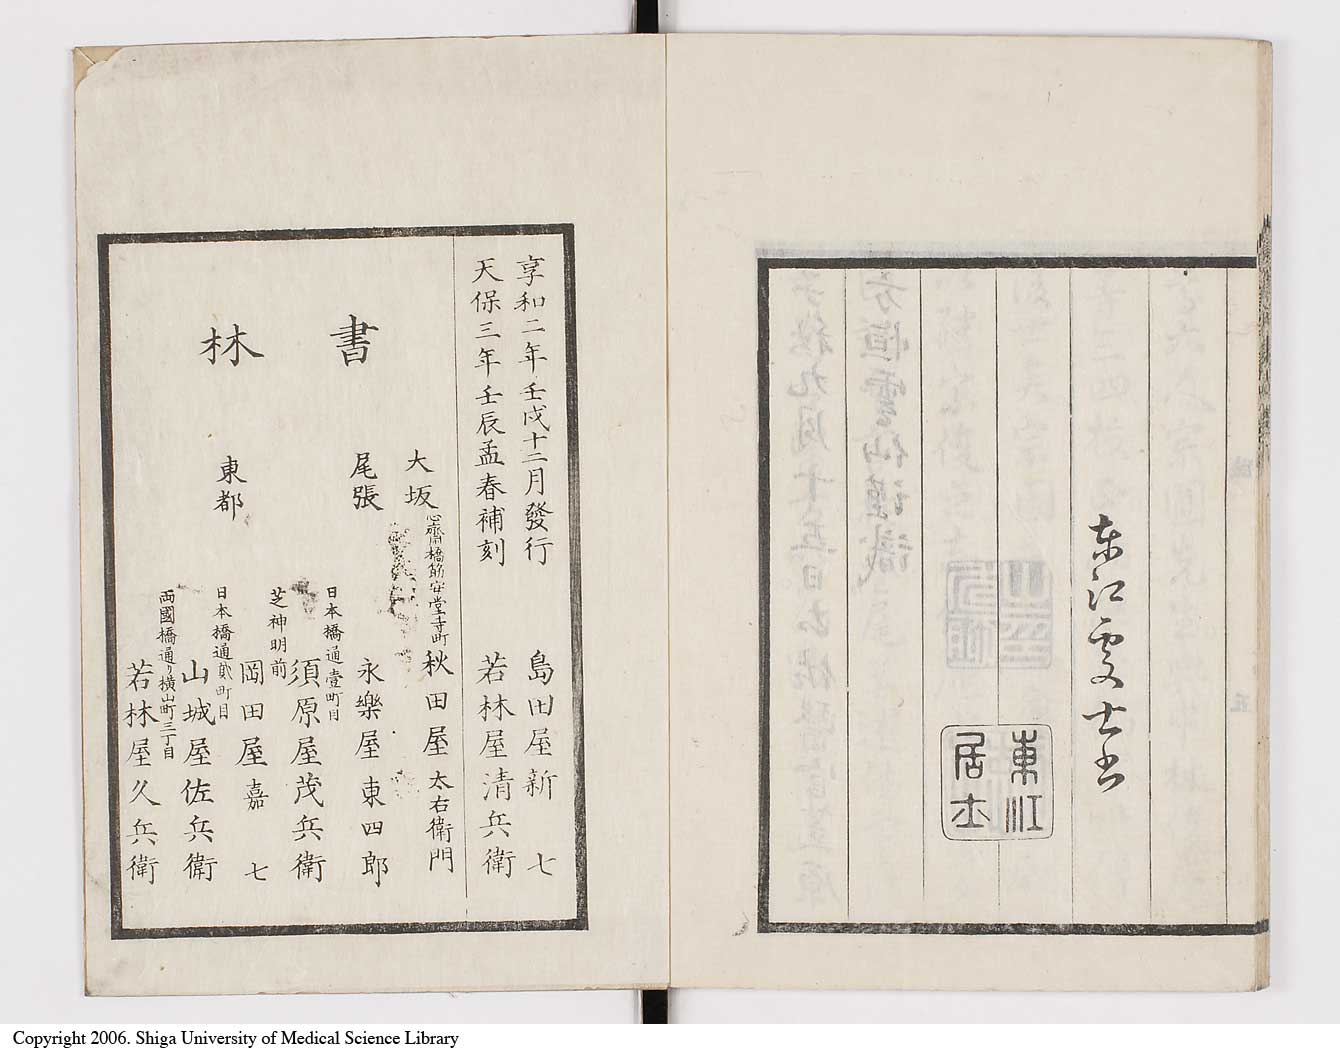 东江雯士书
東江
居士
享和二年壬戌十二月發行 島田屋新七
天保三年壬辰孟春補刻 若林屋清兵衛
書林
大坂 心齋橋筋安堂寺町 秋田屋太右衛門
尾張 永樂屋東四郎
日本橋通壹町目 須原屋茂兵衛
芝神明前 岡田屋嘉七
東都 日本橋通貳町目 山城屋佐兵衛
両國橋通り横山町三丁目 若林屋久兵衛
Copyright 2006. Shiga University of Medical Science Library